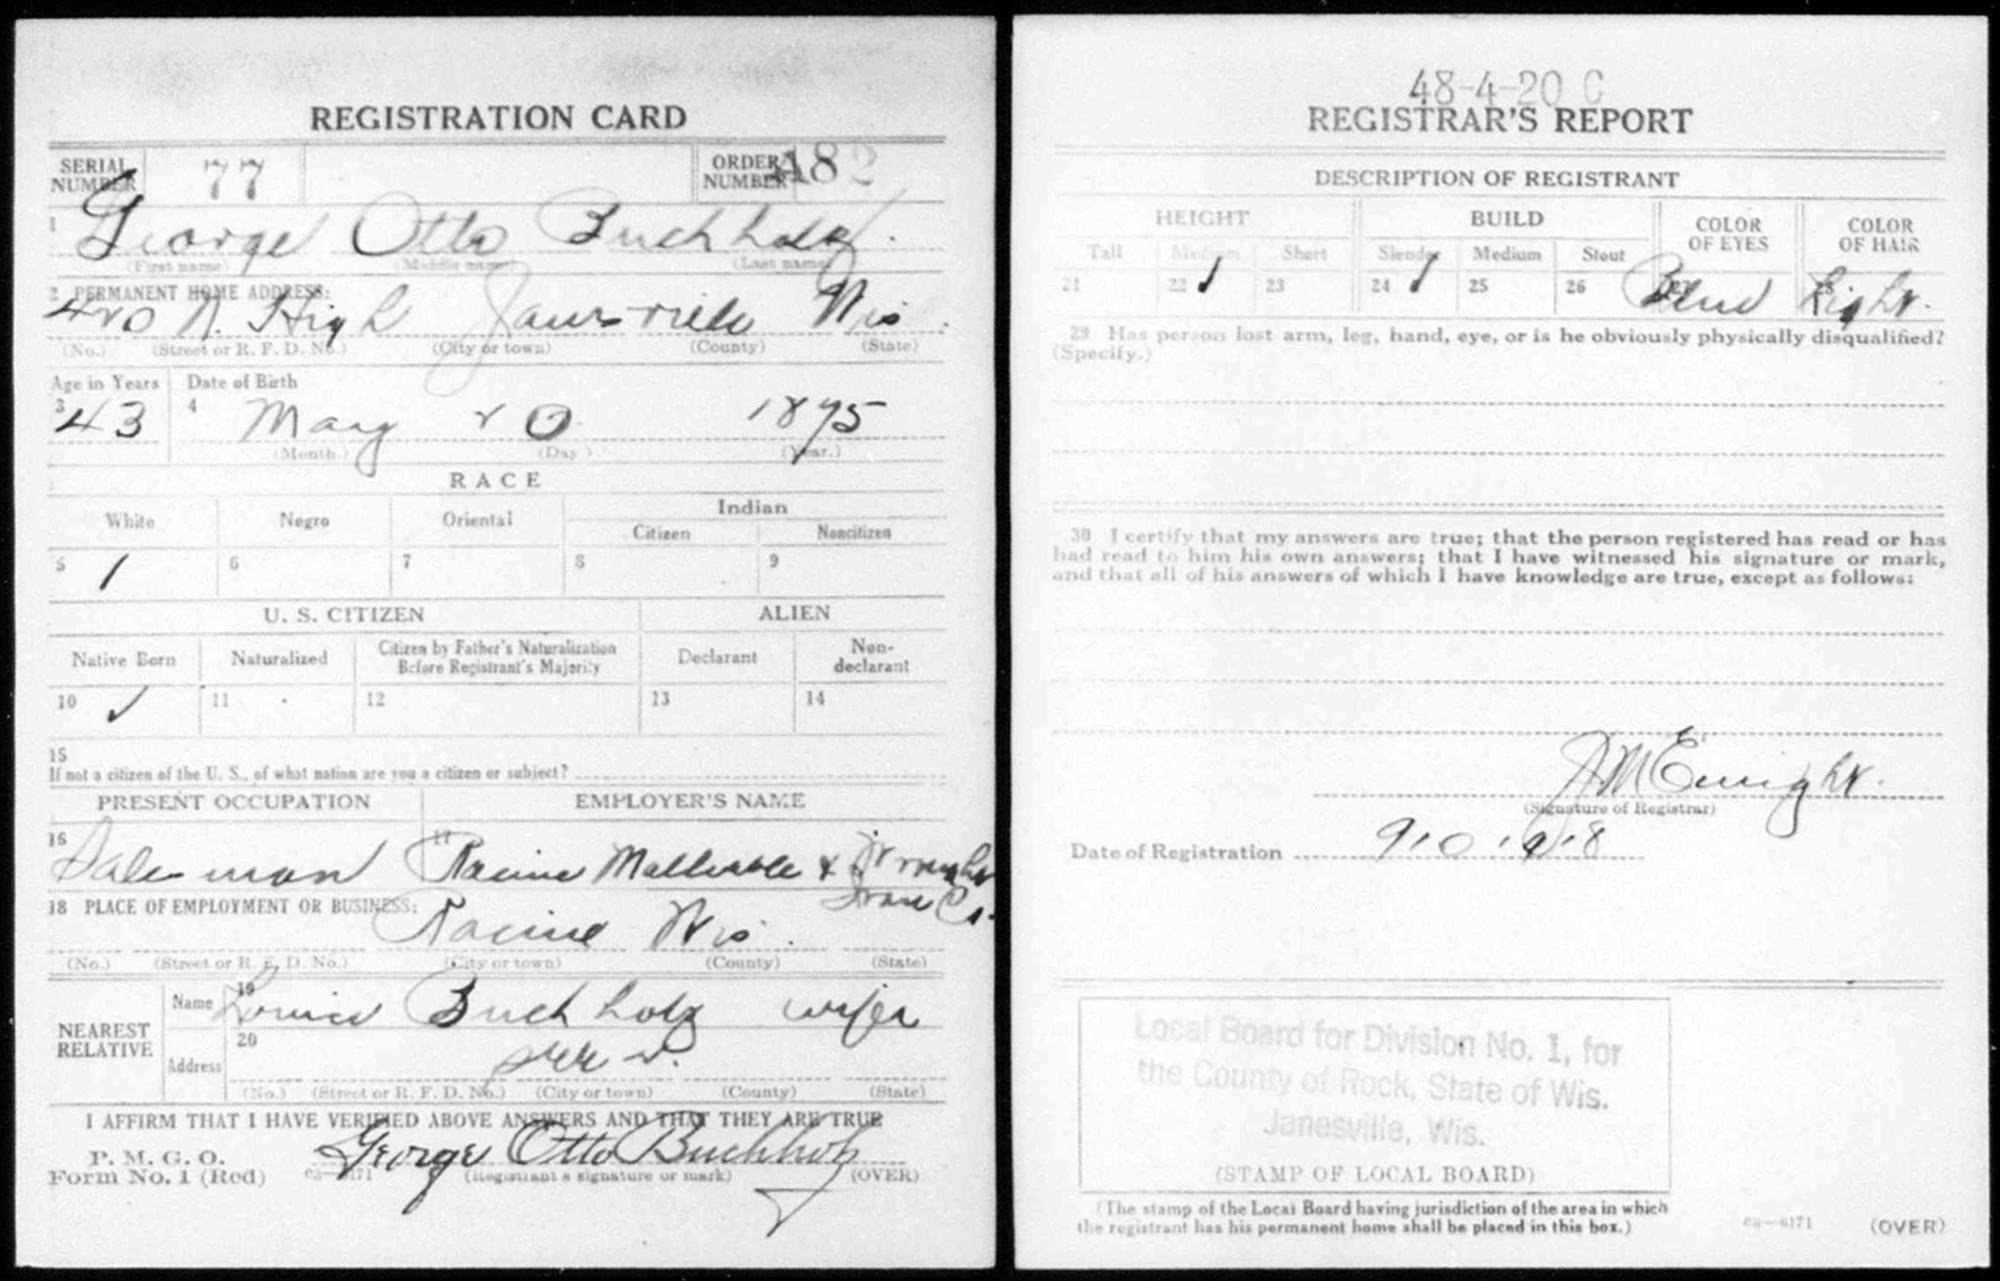 REGISTRATION CARD
SERIAL NUMBER 77 ORDER NUMBER A182
1 George Otto Buchholz
(First name) (Middle name) (Last name)
2 PERMANENT HOME ADDRESS:
420 N. High Janesville Wis.
(No.) (Street or R. F. D. No.) (City or town) (County) (State)
Age in Years Date of Birth
3 43 4 May 20 1875
(Month.) (Day) (Year.)
RACE
White Negro Oriental Indian
Citizen Noncitizen
5 / 6 7 8 9
U. S. CITIZEN ALIEN
Native Born Naturalized Citizen by Father's Naturalization Before Registrant's Majority Declarant Non-declarant
10 ✓ 11 12 13 14
15
If not a citizen of the U. S., of what nation are you a citizen or subject?
PRESENT OCCUPATION EMPLOYER'S NAME
16 Salesman 17 Racine Malleable & Wrought
Iron Co.
18 PLACE OF EMPLOYMENT OR BUSINESS:
Racine Wis.
(No.) (Street or R. F. D. No.) (City or town) (County) (State)
NEAREST RELATIVE
Name 19 Louise Buchholz wife
Address 20
(No.) (Street or R. F. D. No.) (City or town) (County) (State)
I AFFIRM THAT I HAVE VERIFIED ABOVE ANSWERS AND THAT THEY ARE TRUE
P. M. G. O.
Form No. 1 (Red) George Otto Buchholz
(Registrant's signature or mark) (OVER)
48-4-20 C
REGISTRAR'S REPORT
DESCRIPTION OF REGISTRANT
HEIGHT BUILD COLOR OF EYES COLOR OF HAIR
Tall Medium Short Slender Medium Stout
21 22 / 23 24 / 25 26 27 Blue 28 Light.
29 Has person lost arm, leg, hand, eye, or is he obviously physically disqualified?
(Specify.)
30 I certify that my answers are true; that the person registered has read or has
had read to him his own answers; that I have witnessed his signature or mark,
and that all of his answers of which I have knowledge are true, except as follows:
J M Enright.
(Signature of Registrar)
Date of Registration
Local Board for Division No. 1, for
the County of Rock, State of Wis.
Janesville, Wis.
(STAMP OF LOCAL BOARD)
(The stamp of the Local Board having jurisdiction of the area in which
the registrant has his permanent home shall be placed in this box.)
03—6171 (OVER)